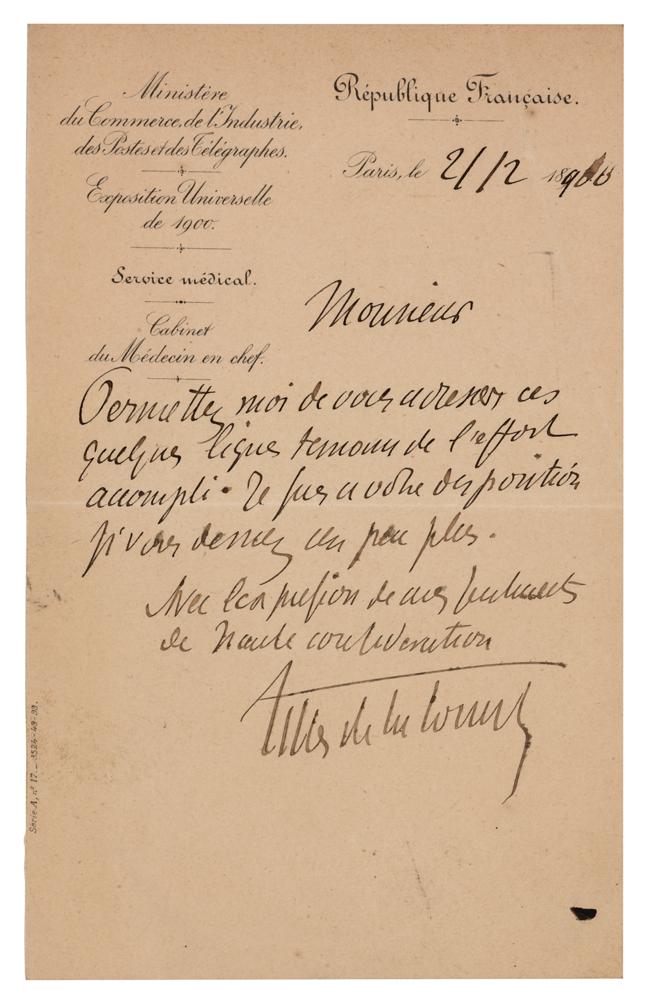 Ministère
du Commerce, de l'Industrie,
des Postes et des Télégraphes.
Exposition Universelle
de 1900.
Service médical.
Cabinet
du Médecin en chef.
République Française.
Paris, le 2/12 1900
Monsieur
Permettez moi de vous adresser ces
quelques lignes temoins de l'effort
accompli. Je suis a votre disposition
si vous desirez un peu plus.
Avec l'expression de mes sentiments
de haute consideration
Gilles de la Tourette
Série A, n° 17. _ 3524-49-99.